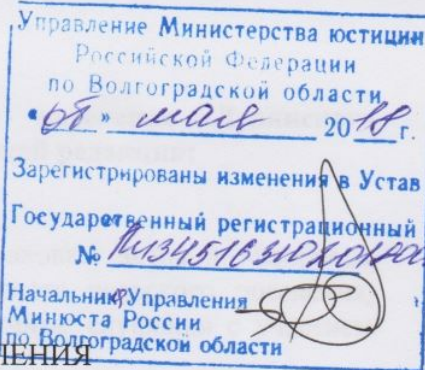 Управление Министерства юстиции
Российской Федерации
по Волгоградской области
" " мая 2018 г.
Зарегистрированы изменения в Устав
Государственный регистрационный
№
Начальник Управления
Минюста России
по Волгоградской области
ЛЕНИЯ